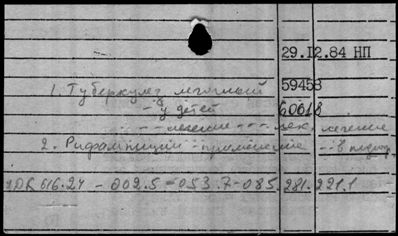 29.12.84 НП
1. Туберкулез легочный 59458
- у детей 60618
- - лечение - - лек. лечение
2. Рифампицин - применение - - в педиатр.
УДК 616.24 - 002.5 - 053.7 - 085.281.221.1